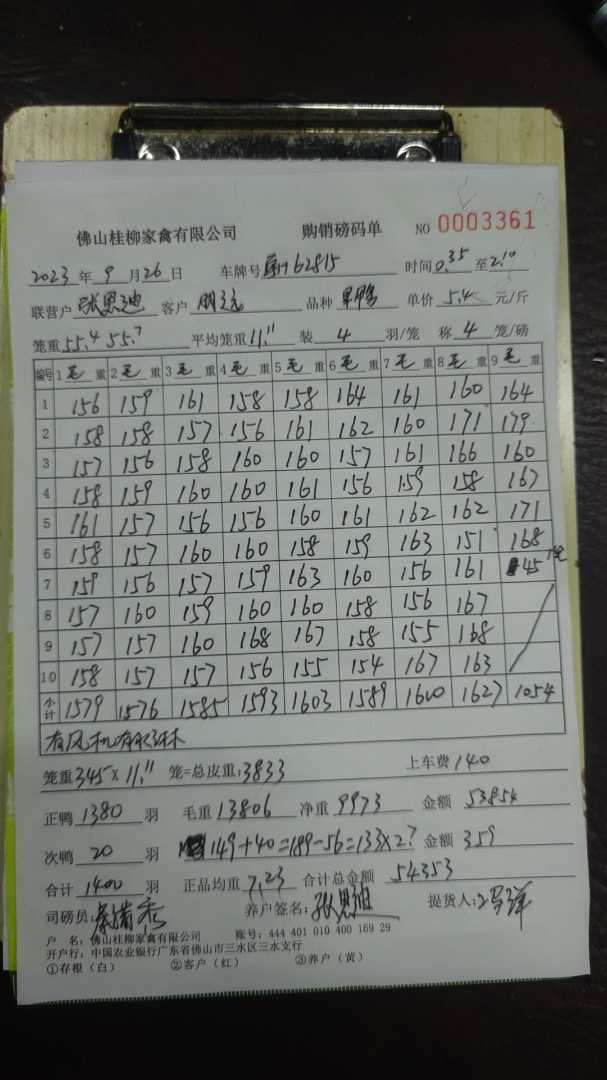 佛山桂柳家禽有限公司 购销磅码单 NO 0003361
2023 年 9 月 26 日 车牌号 62815 时间 0.35 至 2.10
联营户 张思迪 客户 品种 单价 5.4 元/斤
笼重 55.4 55.7 平均笼重 11.11 装 4 羽/笼 称 4 笼/磅
编号 1 毛 重 2 毛 重 3 毛 重 4 毛 重 5 毛 重 6 毛 重 7 毛 重 8 毛 重 9 毛 重
1 156 159 161 158 158 164 161 160 164
2 158 158 157 156 161 162 160 171 179
3 157 156 158 160 160 157 161 166 160
4 158 159 160 160 161 156 159 158 167
5 161 157 156 156 160 161 162 162 171
6 158 157 160 160 158 159 163 151 168
7 159 156 157 159 163 160 156 161 45
8 157 160 159 160 160 158 156 167
9 157 157 160 168 167 158 155 168
10 158 157 157 156 155 154 167 163
小计 1579 1576 1585 1593 1603 1589 1600 1627 1054
有风机有
笼重 345 × 11.11 笼=总皮重: 3833 上车费 140
正鸭 1380 羽 毛重 13806 净重 9973 金额 53854
次鸭 20 羽 149+40=189-56=133×2.7 金额 359
合计 1400 羽 正品均重 7.23 合计总金额 54353
司磅员: 养户签名: 张思迪 提货人:
户 名: 佛山桂柳家禽有限公司 账号: 444 401 010 400 169 29
开户行: 中国农业银行广东省佛山市三水区三水支行
①存根（白） ②客户（红） ③养户（黄）